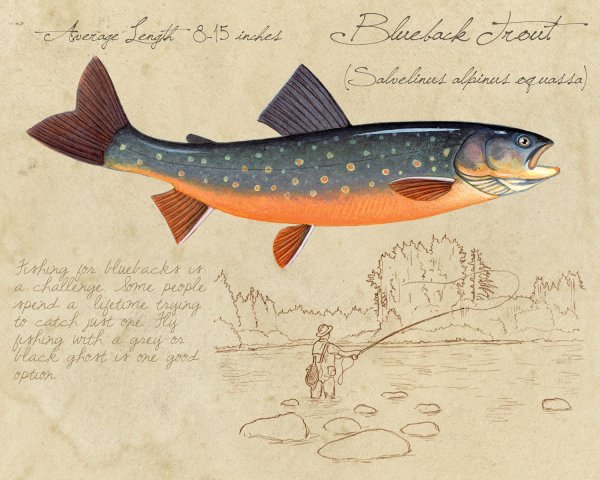 Average Length 8-15 inches
Blueback Trout
(Salvelinus alpinus oquassa)
Fishing for bluebacks is
a challenge. Some people
spend a lifetime trying
to catch just one. Fly
fishing with a grey or
black ghost is one good
option.